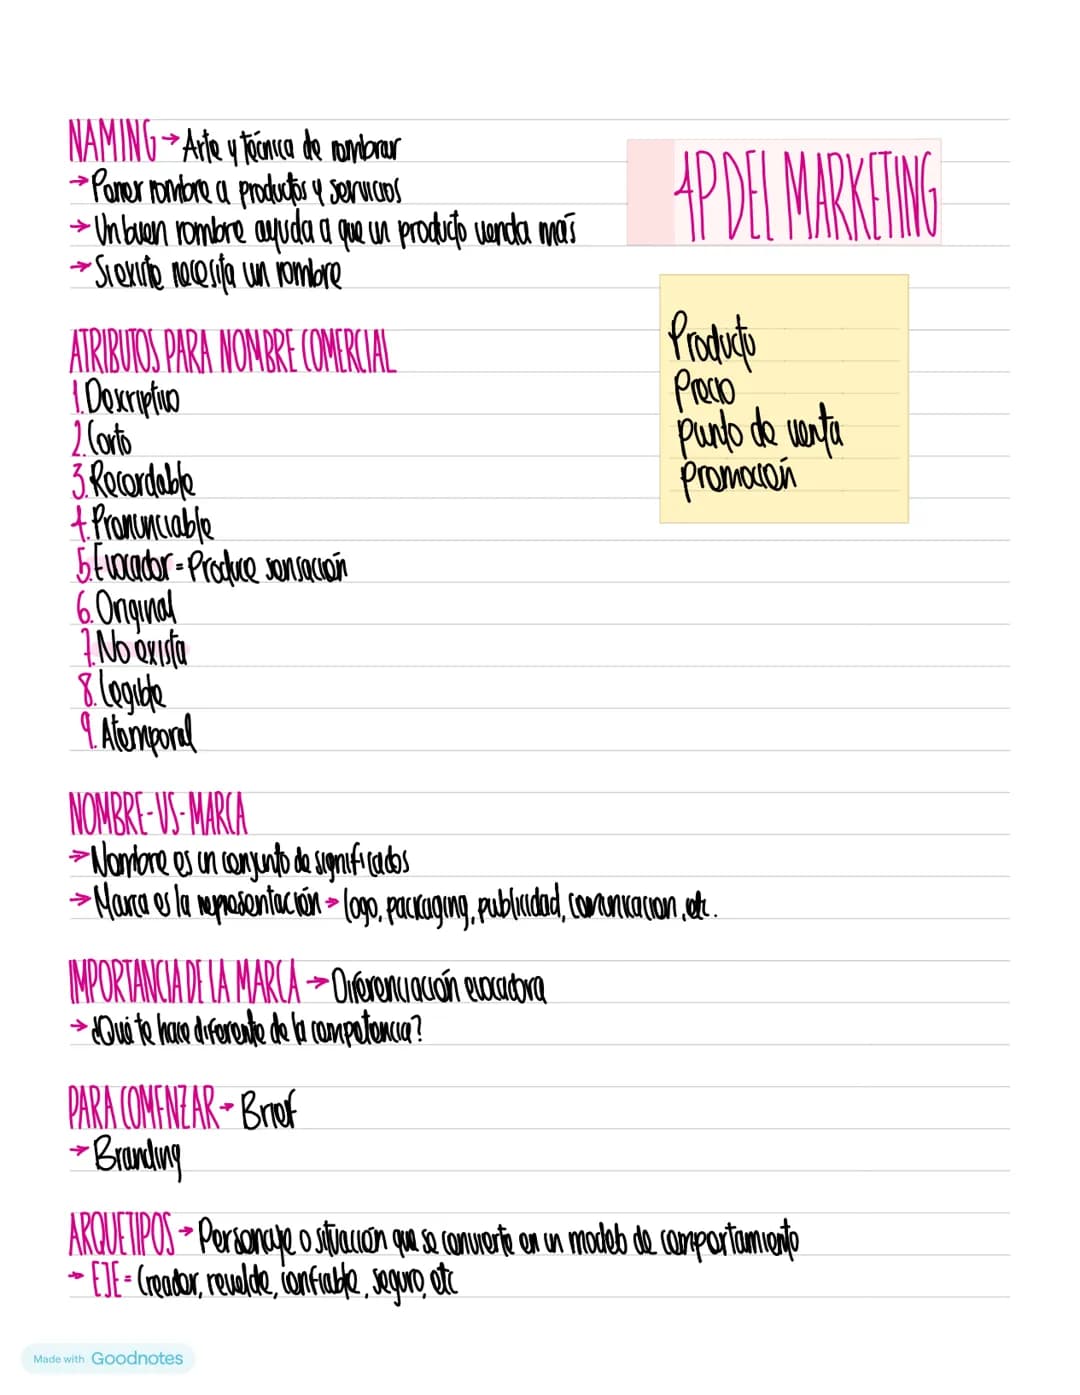 NAMING → Arte y técnica de nombrar
→ Poner nombre a productos y servicios
→ Un buen nombre ayuda a que un producto venda más
→ Si existe necesita un nombre
4P DEL MARKETING
Producto
Precio
punto de venta
promoción
ATRIBUTOS PARA NOMBRE COMERCIAL
1. Descriptivo
2. Corto
3. Recordable
4. Pronunciable
5. Evocador = Produce sensación
6. Original
7. No exista
8. Legible
9. Atemporal
NOMBRE-VS-MARCA
→ Nombre es un conjunto de significados
→ Marca es la representación → logo, packaging, publicidad, comunicacion, etc.
IMPORTANCIA DE LA MARCA → Diferenciación evocadora
→ ¿Qué te hace diferente de la competencia?
PARA COMENZAR → Brief
→ Branding
ARQUETIPOS → Personaje o situación que se convierte en un modelo de comportamiento
→ EJE = Creador, revelde, confiable, seguro, etc
Made with Goodnotes